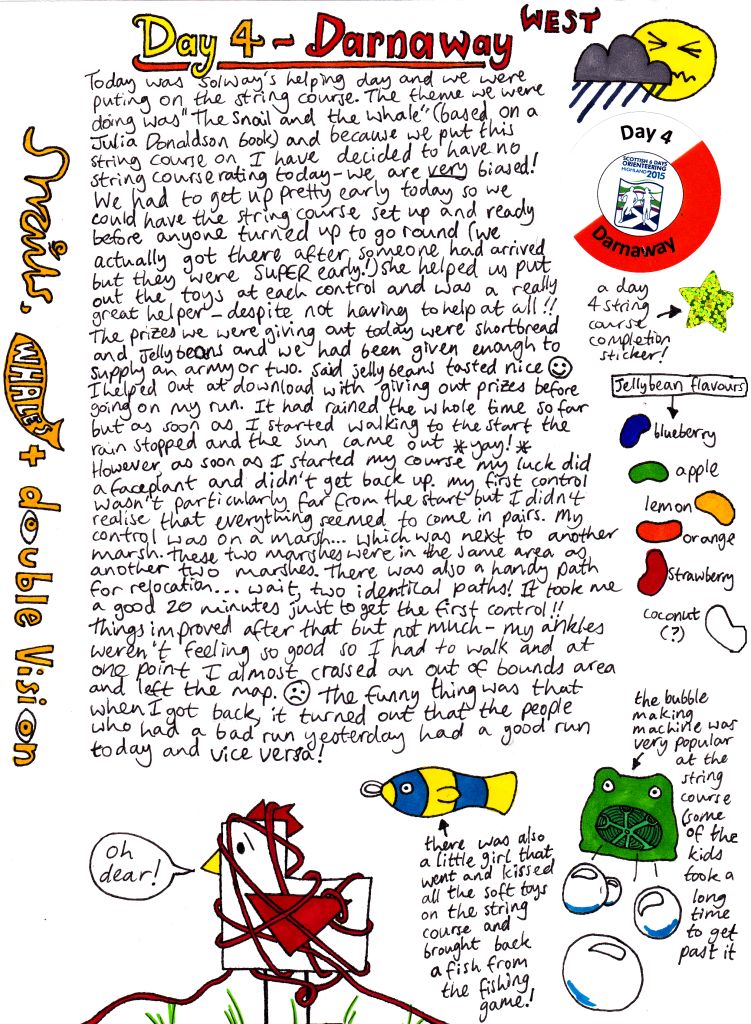 Day 4 - Darnaway WEST
Today was Solway's helping day and we were
puting on the string course. The theme we were
doing was "The Snail and the Whale" (based on a
Julia Donaldson book) and because we put this
string course on I have decided to have no
string course rating today - we are very biased!
We had to get up pretty early today so we
could have the string course set up and ready
before anyone turned up to go round (we
actually got there after someone had arrived
but they were SUPER early!) She helped us put
out the toys at each control and was a really
great helper - despite not having to help at all!!
The prizes we were giving out today were shortbread
and jellybeans and we had been given enough to
supply an army or two. Said jellybeans tasted nice
I helped out at download with giving out prizes before
going on my run. It had rained the whole time so far
but as soon as I started walking to the start the
rain stopped and the sun came out *yay!*
However, as soon as I started my course my luck did
a faceplant and didn't get back up. my first control
wasn't particularly far from the start but I didn't
realise that everything seemed to come in pairs. My
control was on a marsh... which was next to another
marsh. These two marshes were in the same area as
another two marshes. There was also a handy path
for relocation... wait, two identical paths! It took me
a good 20 minutes just to get the first control!!
Things improved after that but not much - my ankles
weren't feeling so good so I had to walk and at
one point I almost crossed an out of bounds area
and left the map. The funny thing was that
when I got back, it turned out that the people
who had a bad run yesterday had a good run
today and vice versa!
Snails, WHALES + double vision
Day 4
SCOTTISH 6 DAYS
ORIENTEERING
HIGHLAND 2015
Darnaway
a day
4 string
course
completion
sticker!
Jellybean flavours
blueberry
apple
lemon
orange
strawberry
coconut
(?)
the bubble
making
machine was
very popular
at the
string
course
(some
of the
kids
took a
long
time
to get
past it
there was also
a little girl that
went and kissed
all the soft toys
on the string
course and
brought back
a fish from
the fishing
game!
Oh
dear!